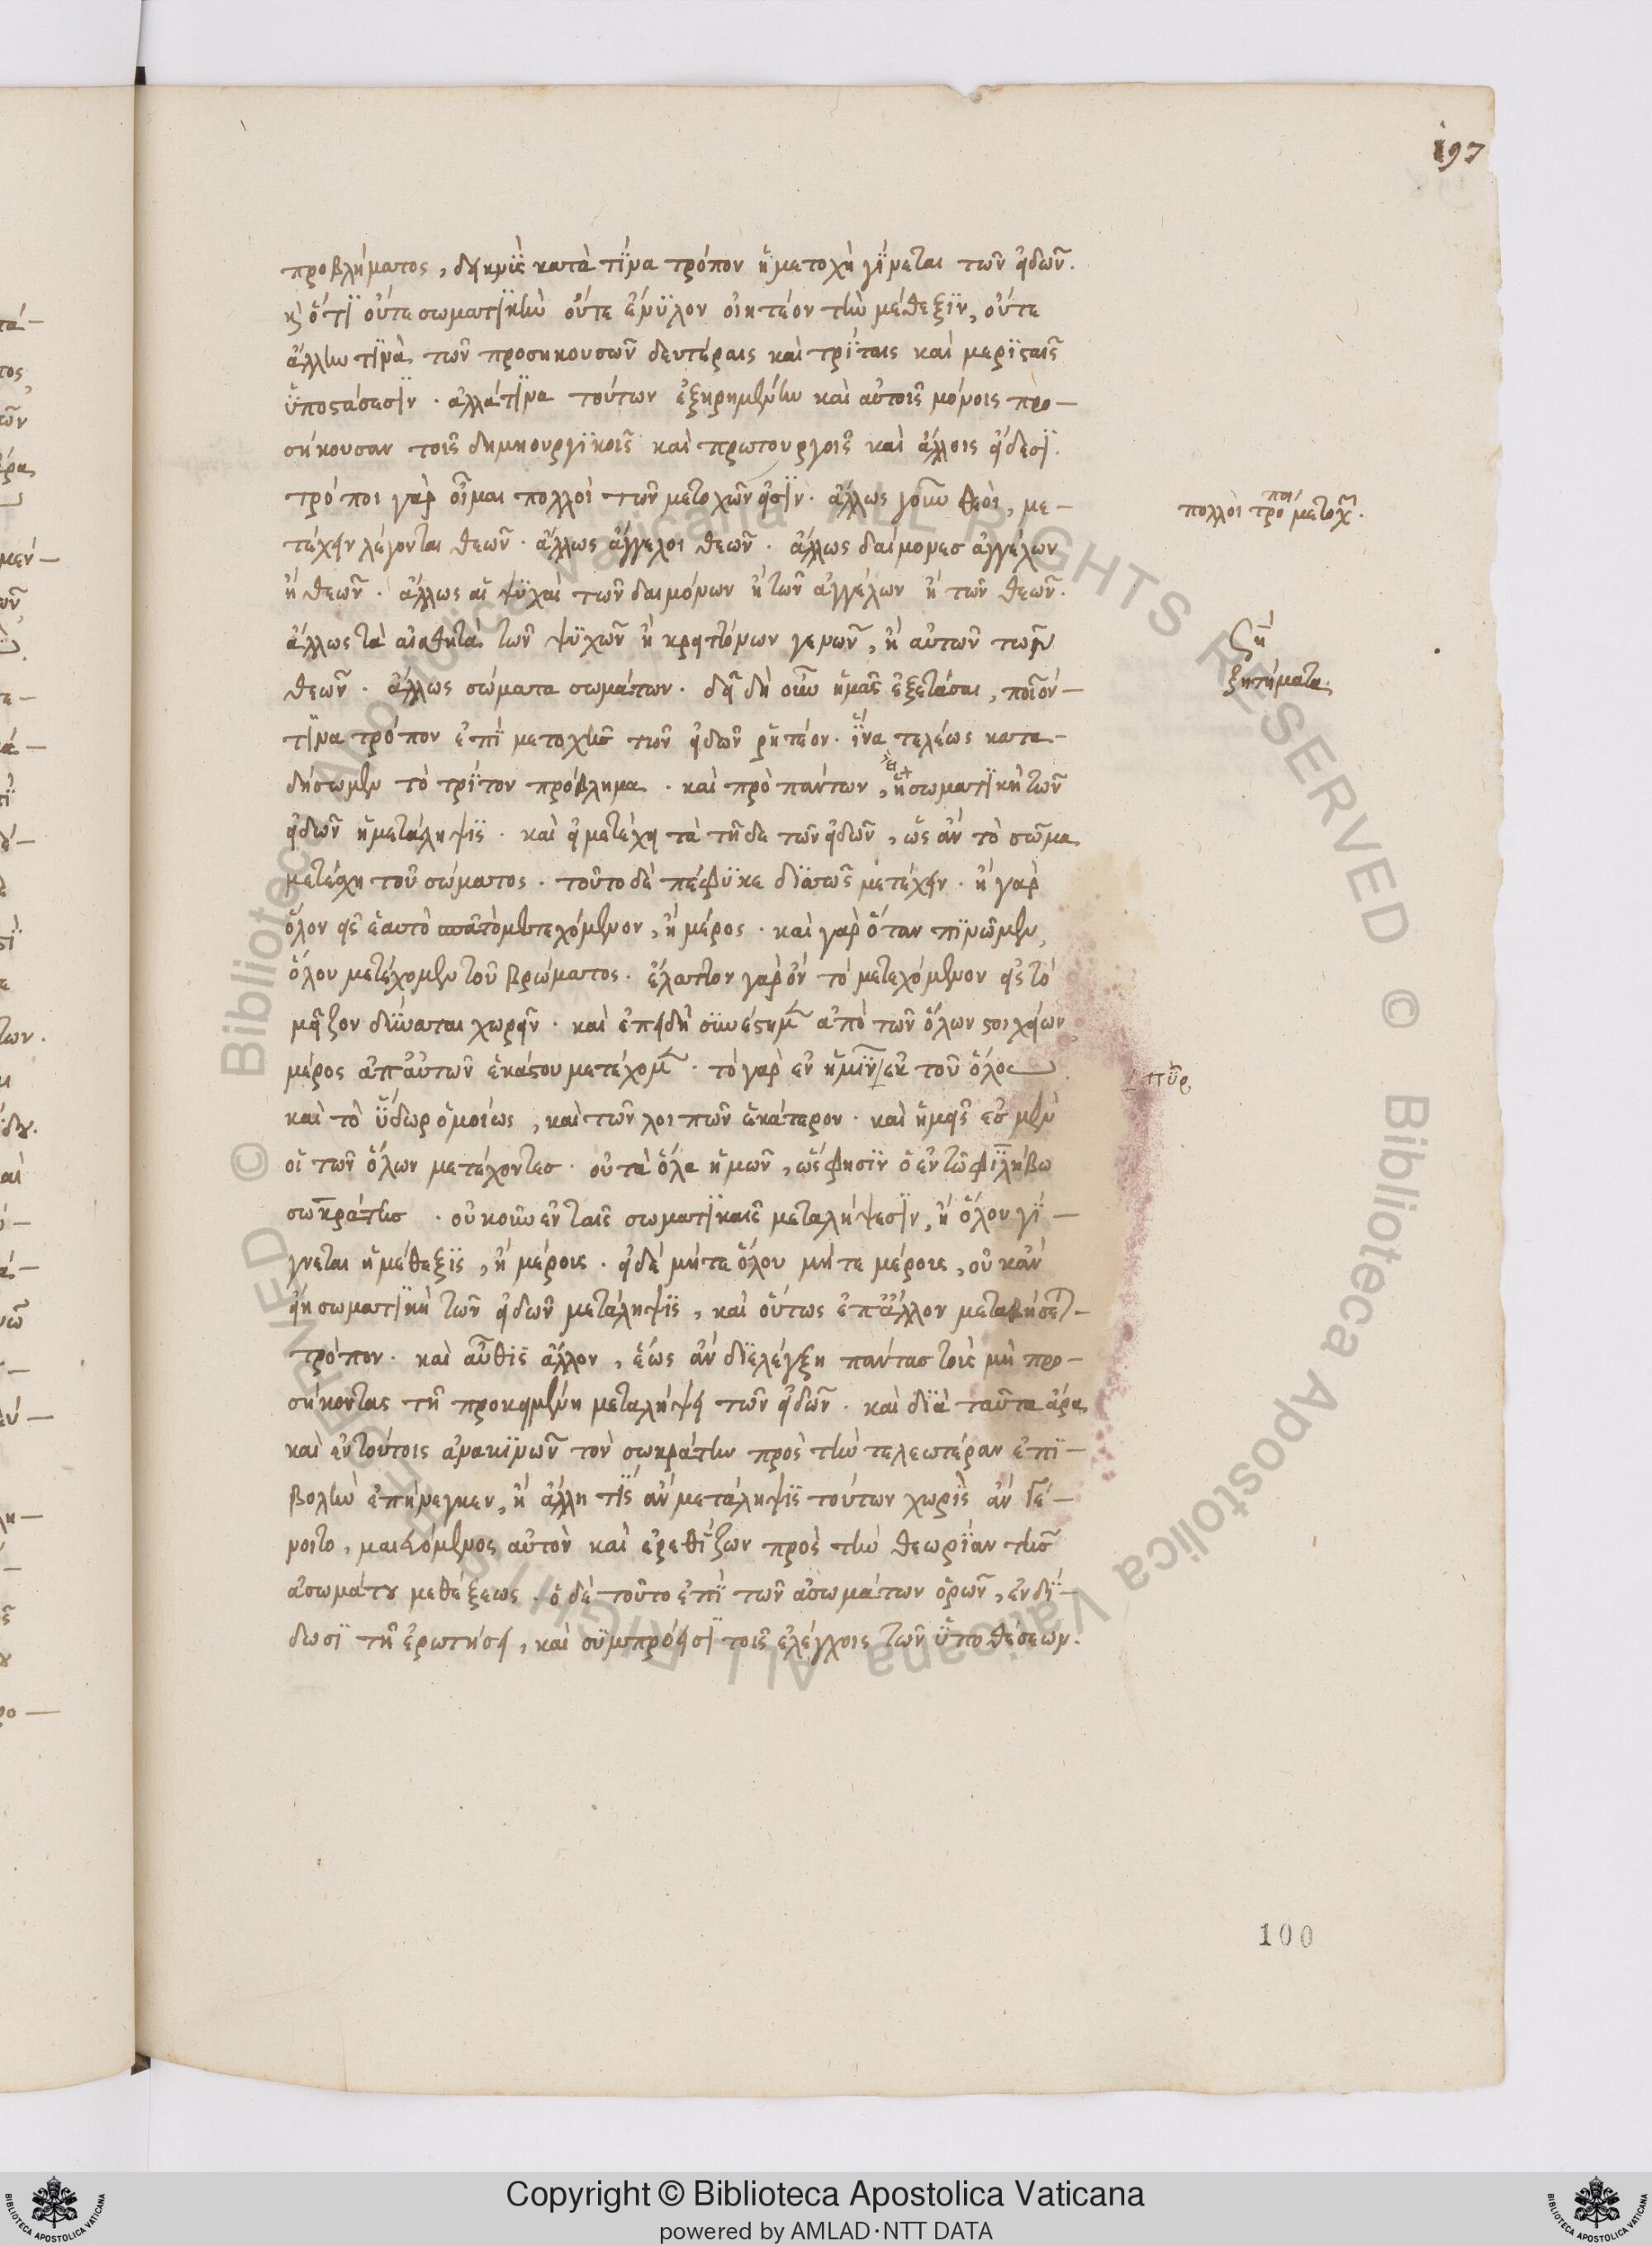 197
προβλήματος, δεικνῒς κατὰ τίνα τρόπον ἡ μετοχὴ γίνεται τῶν εἰδῶν.
κ ὅτι οὔτε σωματικὴν οὔτε ἔνϋλον οἰητέον τὴν μέθεξιν, οὔτε
ἄλλην τινὰ τῶν προσηκουσῶν δευτέραις καὶ τρίταις καὶ μεριςαῖς
ὑποςάσεσιν · ἀλλά τινα τούτων ἐξηρημένην καὶ αὐτοῖς μόνοις προ–
σήκουσαν τοῖς δημιουργικοῖς καὶ πρωτουργοῖς καὶ ἄλλοις εἴδεσι.
τρόποι γὰρ οἶμαι πολλοὶ τῶν μετοχῶν εἰσίν · ἄλλως γοῦν θεοὶ, με–
τέχειν λέγονται θεῶν · ἄλλως ἄγγελοι θεῶν · ἄλλως δαίμονεσ ἀγγέλων
ἢ θεῶν · ἄλλως αἱ ψυχαὶ τῶν δαιμόνων ἢ τῶν ἀγγέλων ἢ τῶν θεῶν.
ἄλλως τὰ αἰσθητὰ τῶν ψυχῶν ἢ κρειττόνων γενῶν, ἢ αὐτῶν τῶν
θεῶν · ἄλλως σώματα σωμάτων · δεῖ δὴ οὖν ἡμᾶς ἐξετάσαι, ποῖόν–
τινα τρόπον ἐπὶ μετοχῆς τῶν εἰδῶν ῥητέον · ἵνα τελέως κατα–
δήσωμεν τὸ τρίτον πρόβλημα · καὶ πρὸ πάντων, ἡ σωματικὴ τῶν
εἰδῶν ἡ μετάληψις · καὶ εἰ μετέχῃ τὰ τῆδε τῶν εἰδῶν, ὡς ἂν τὸ σῶμα
μετέχῃ τοῦ σώματος · τοῦτο δὲ πέφυκε διττῶς μετέχειν · ἢ γὰρ
ὅλον εἰς ἑαυτὸ τὸ μετεχόμενον, ἢ μέρος · καὶ γὰρ ὅταν πινῶμεν,
ὅλου μετέχομεν τοῦ βρώματος · ἔλαττον γὰρ ὂν τὸ μετεχόμενον εἰς τὸ
μεῖζον δύναται χωρεῖν · καὶ ἐπειδὴ συνέςημεν ἀπὸ τῶν ὅλων ςοιχείων
μέρος ἀπ' αὐτῶν ἑκάςου μετέχομεν · τὸ γὰρ ἐν ἡμῖν / ἐκ τοῦ ὅλου
καὶ τὸ ὕδωρ ὁμοίως, καὶ τῶν λοιπῶν ἑκάτερον · καὶ ἡμεῖς ἐσμὲν
οἱ τῶν ὅλων μετέχοντεσ · οὐ τὰ ὅλα ἡμῶν, ὡς ἔφησιν ὁ ἐν τῶ φιλήβω
σωκράτης · οὐκοῦν ἐν ταῖς σωματικαῖς μεταλήψεσιν, ἢ ὅλου γί–
γνεται ἡ μέθεξις, ἢ μέρους · εἰ δὲ μήτε ὅλου μήτε μέρους, οὐκ ἂν
εἴη σωματικὴ τῶν εἰδῶν μετάληψις, καὶ οὕτως ἐπ' ἄλλον μεταβήσετ–
τρόπον · καὶ αὖθις ἄλλον, ἕως ἂν διελέγξῃ πάντασ τοὺς μὴ προ–
σήκοντας τῇ προκειμένῃ μεταλήψει τῶν εἰδῶν · καὶ διὰ ταῦτα ἄρα
καὶ ἐν τούτοις ἀνακινῶν τὸν σωκράτην πρὸς τὴν τελεωτέραν ἐπι–
βολὴν ἐπήνεγκεν, ἢ ἄλλη τὶς ἂν μετάληψις τούτων χωρὶς ἂν γέ–
νοιτο, μαιευόμενος αὐτὸν καὶ ἐρεθίζων πρὸς τὴν θεωρίαν τῆς
ἀσωμάτου μεθέξεως · ὁ δὲ τοῦτο ἐπὶ τῶν ἀσωμάτων ὁρῶν, ἐνδί–
δωσι τῇ ἐρωτήσει, καὶ συμπρόεισι τοῖς ἐλέγχοις τῶν ὑποθέσεων.
πολλοὶ τρόποι μετοχ.
ζη
ζητήματα.
/ πῦρ
100
Copyright © Biblioteca Apostolica Vaticana
powered by AMLAD·NTT DATA